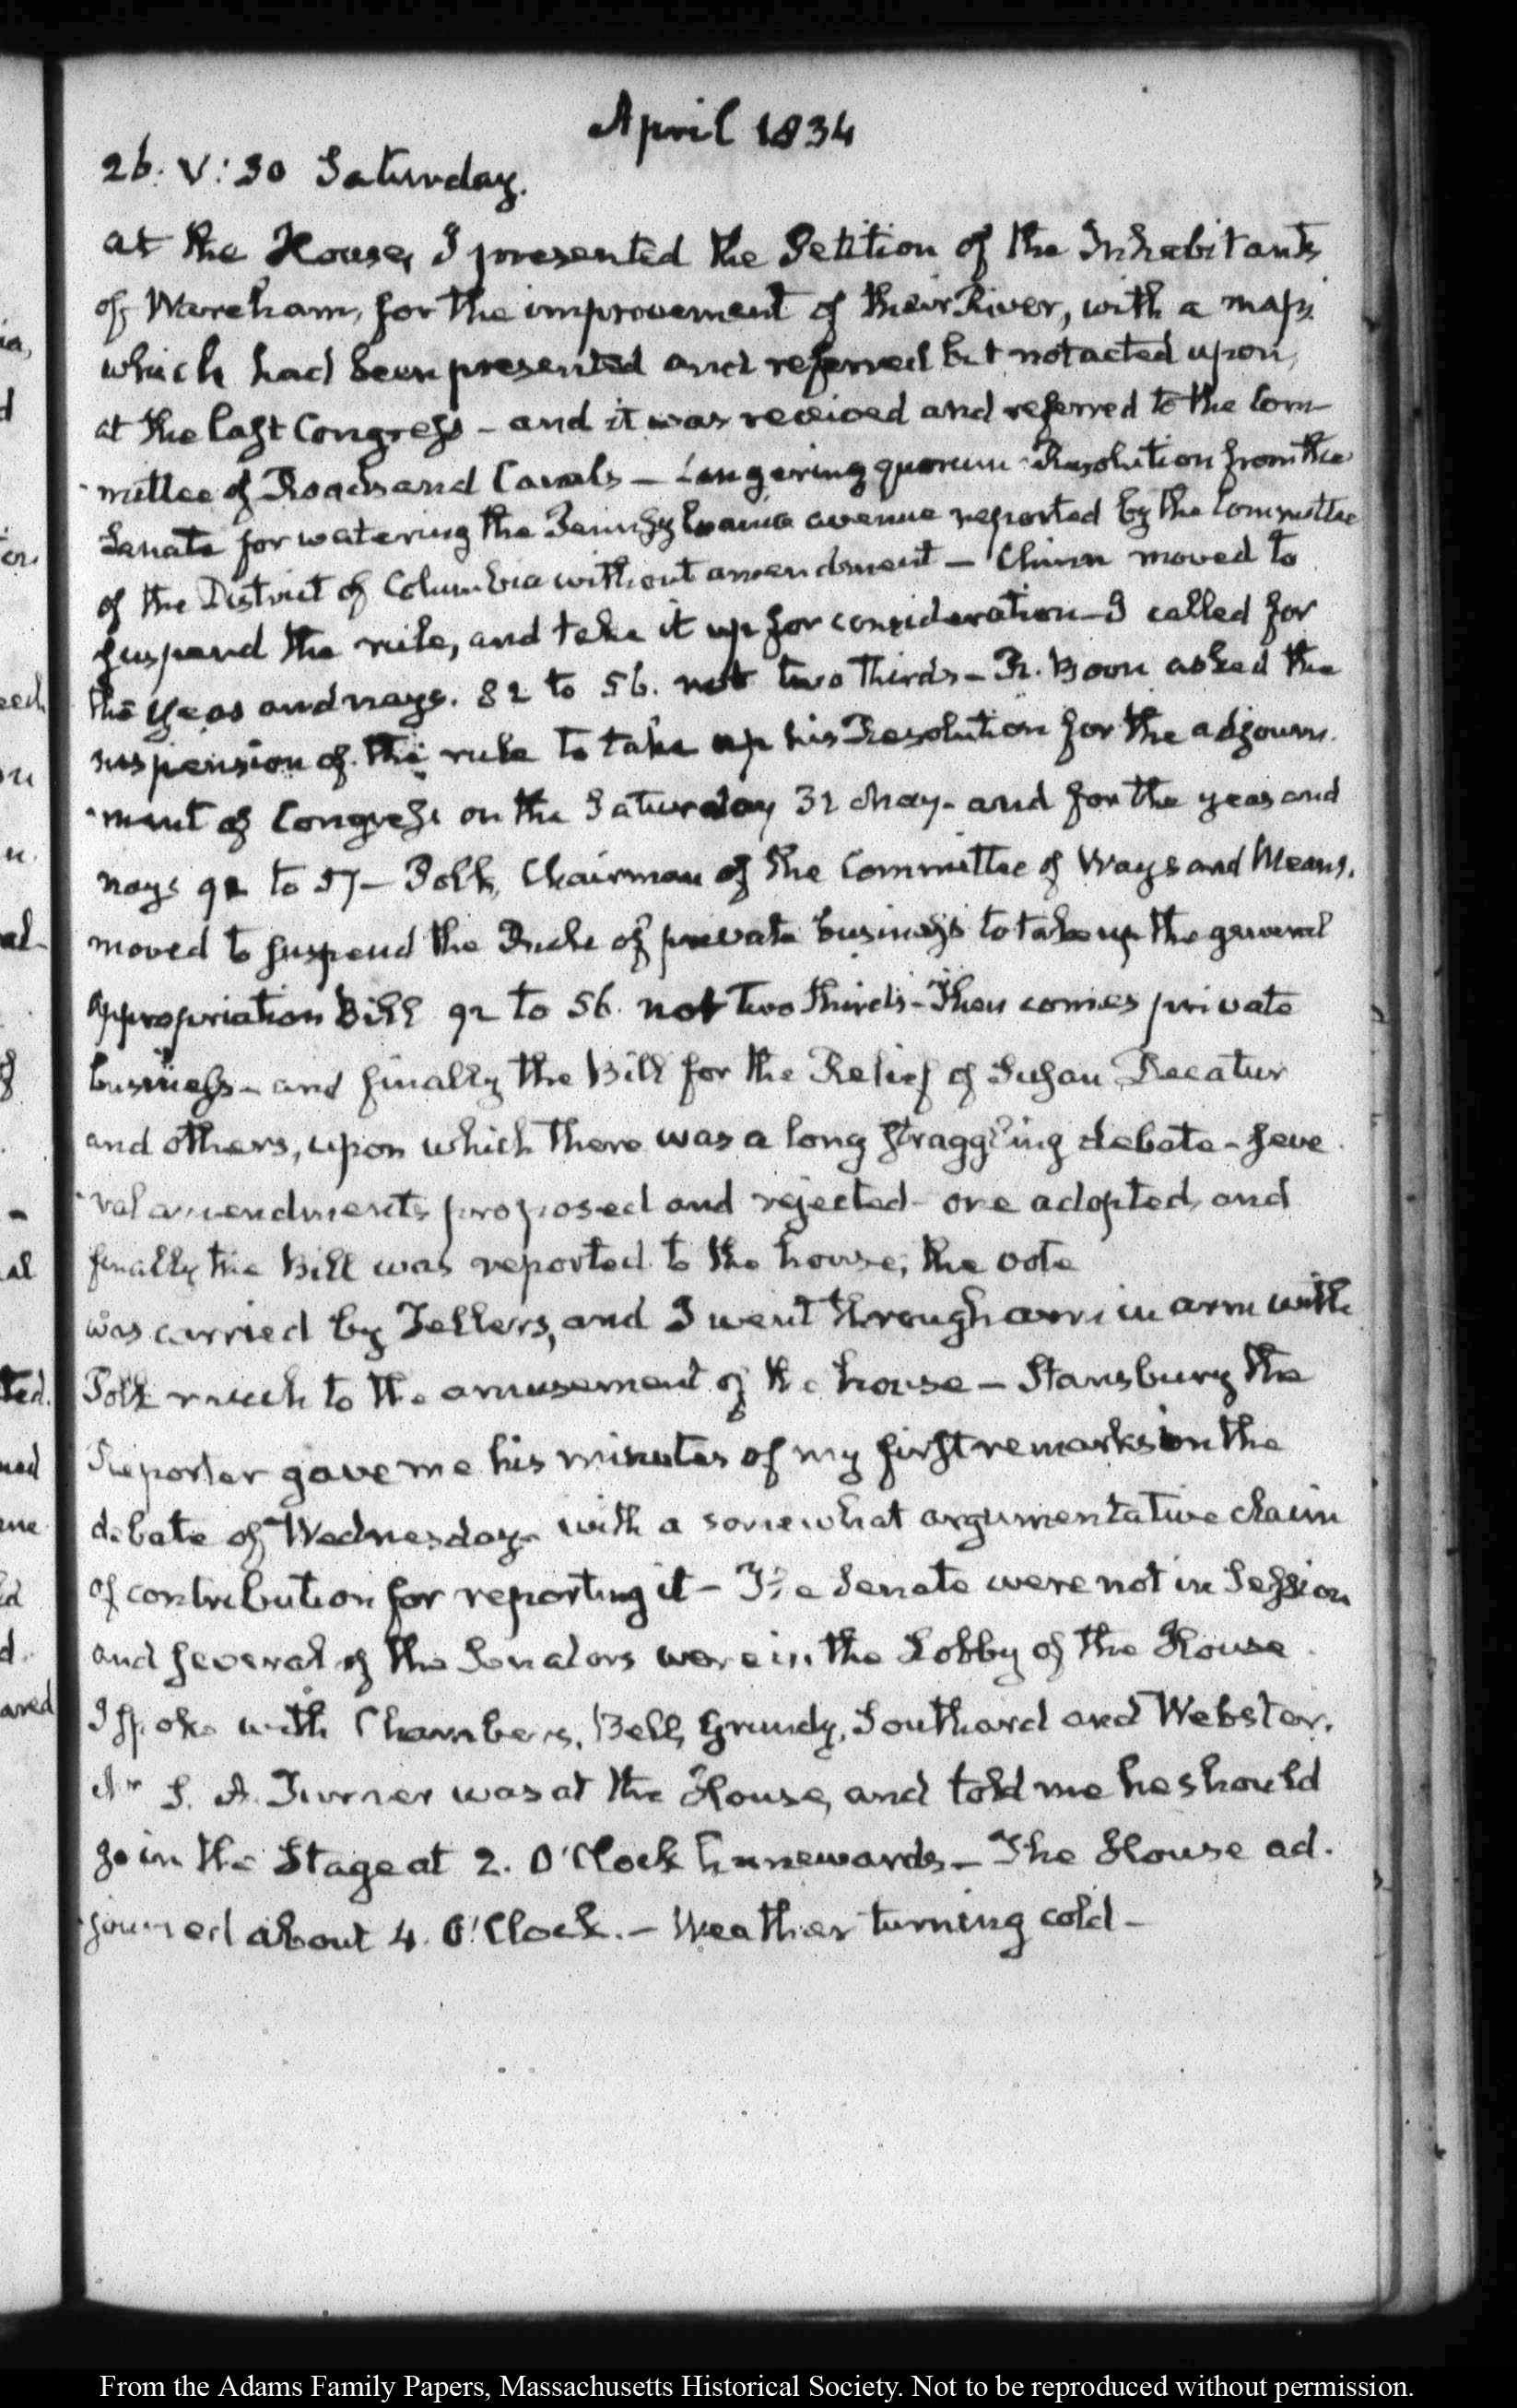 April 1834
26. V:30 Saturday.
at the House, I presented the Petition of the Inhabitants
of Wareham, for the improvement of their River, with a map,
which had been presented and referred but not acted upon,
at the last Congress - and it was received and referred to the Com-
mittee of Roads and Canals - Lingering quorum - Resolution from the
Senate for watering the Pennsylvania avenue reported by the Committee
of the District of Columbia without amendment - Chinn moved to
suspend the rule, and take it up for consideration - I called for
the yeas and nays. 82 to 56. not two thirds - R. Boon asked the
suspension of the rule to take up his Resolution for the adjourn-
ment of Congress on the Saturday 31 May - and for the yeas and
nays 92 to 57 - Polk, Chairman of the Committee of Ways and Means,
moved to suspend the Rule of private business to take up the general
appropriation Bill 92 to 56. not two thirds - Then comes private
business - and finally the Bill for the Relief of Susan Decatur
and others, upon which there was a long straggling debate - seve-
ral amendments proposed and rejected - one adopted, and
finally the Bill was reported to the house; the vote
was carried by Tellers, and I went through arm in arm with
Polk much to the amusement of the house - Stansbury the
Reporter gave me his minutes of my first remarks on the
debate of Wednesday - with a somewhat argumentative claim
of contribution for reporting it - The Senate were not in Session
and several of the Senators were in the Lobby of the House.
I spoke with Chambers, Bell, Grundy, Southard and Webster.
Mr S. A. Turner was at the House, and told me he should
go in the Stage at 2. O'Clock homewards - The House ad-
journed about 4. O'Clock. - Weather turning cold -
From the Adams Family Papers, Massachusetts Historical Society. Not to be reproduced without permission.